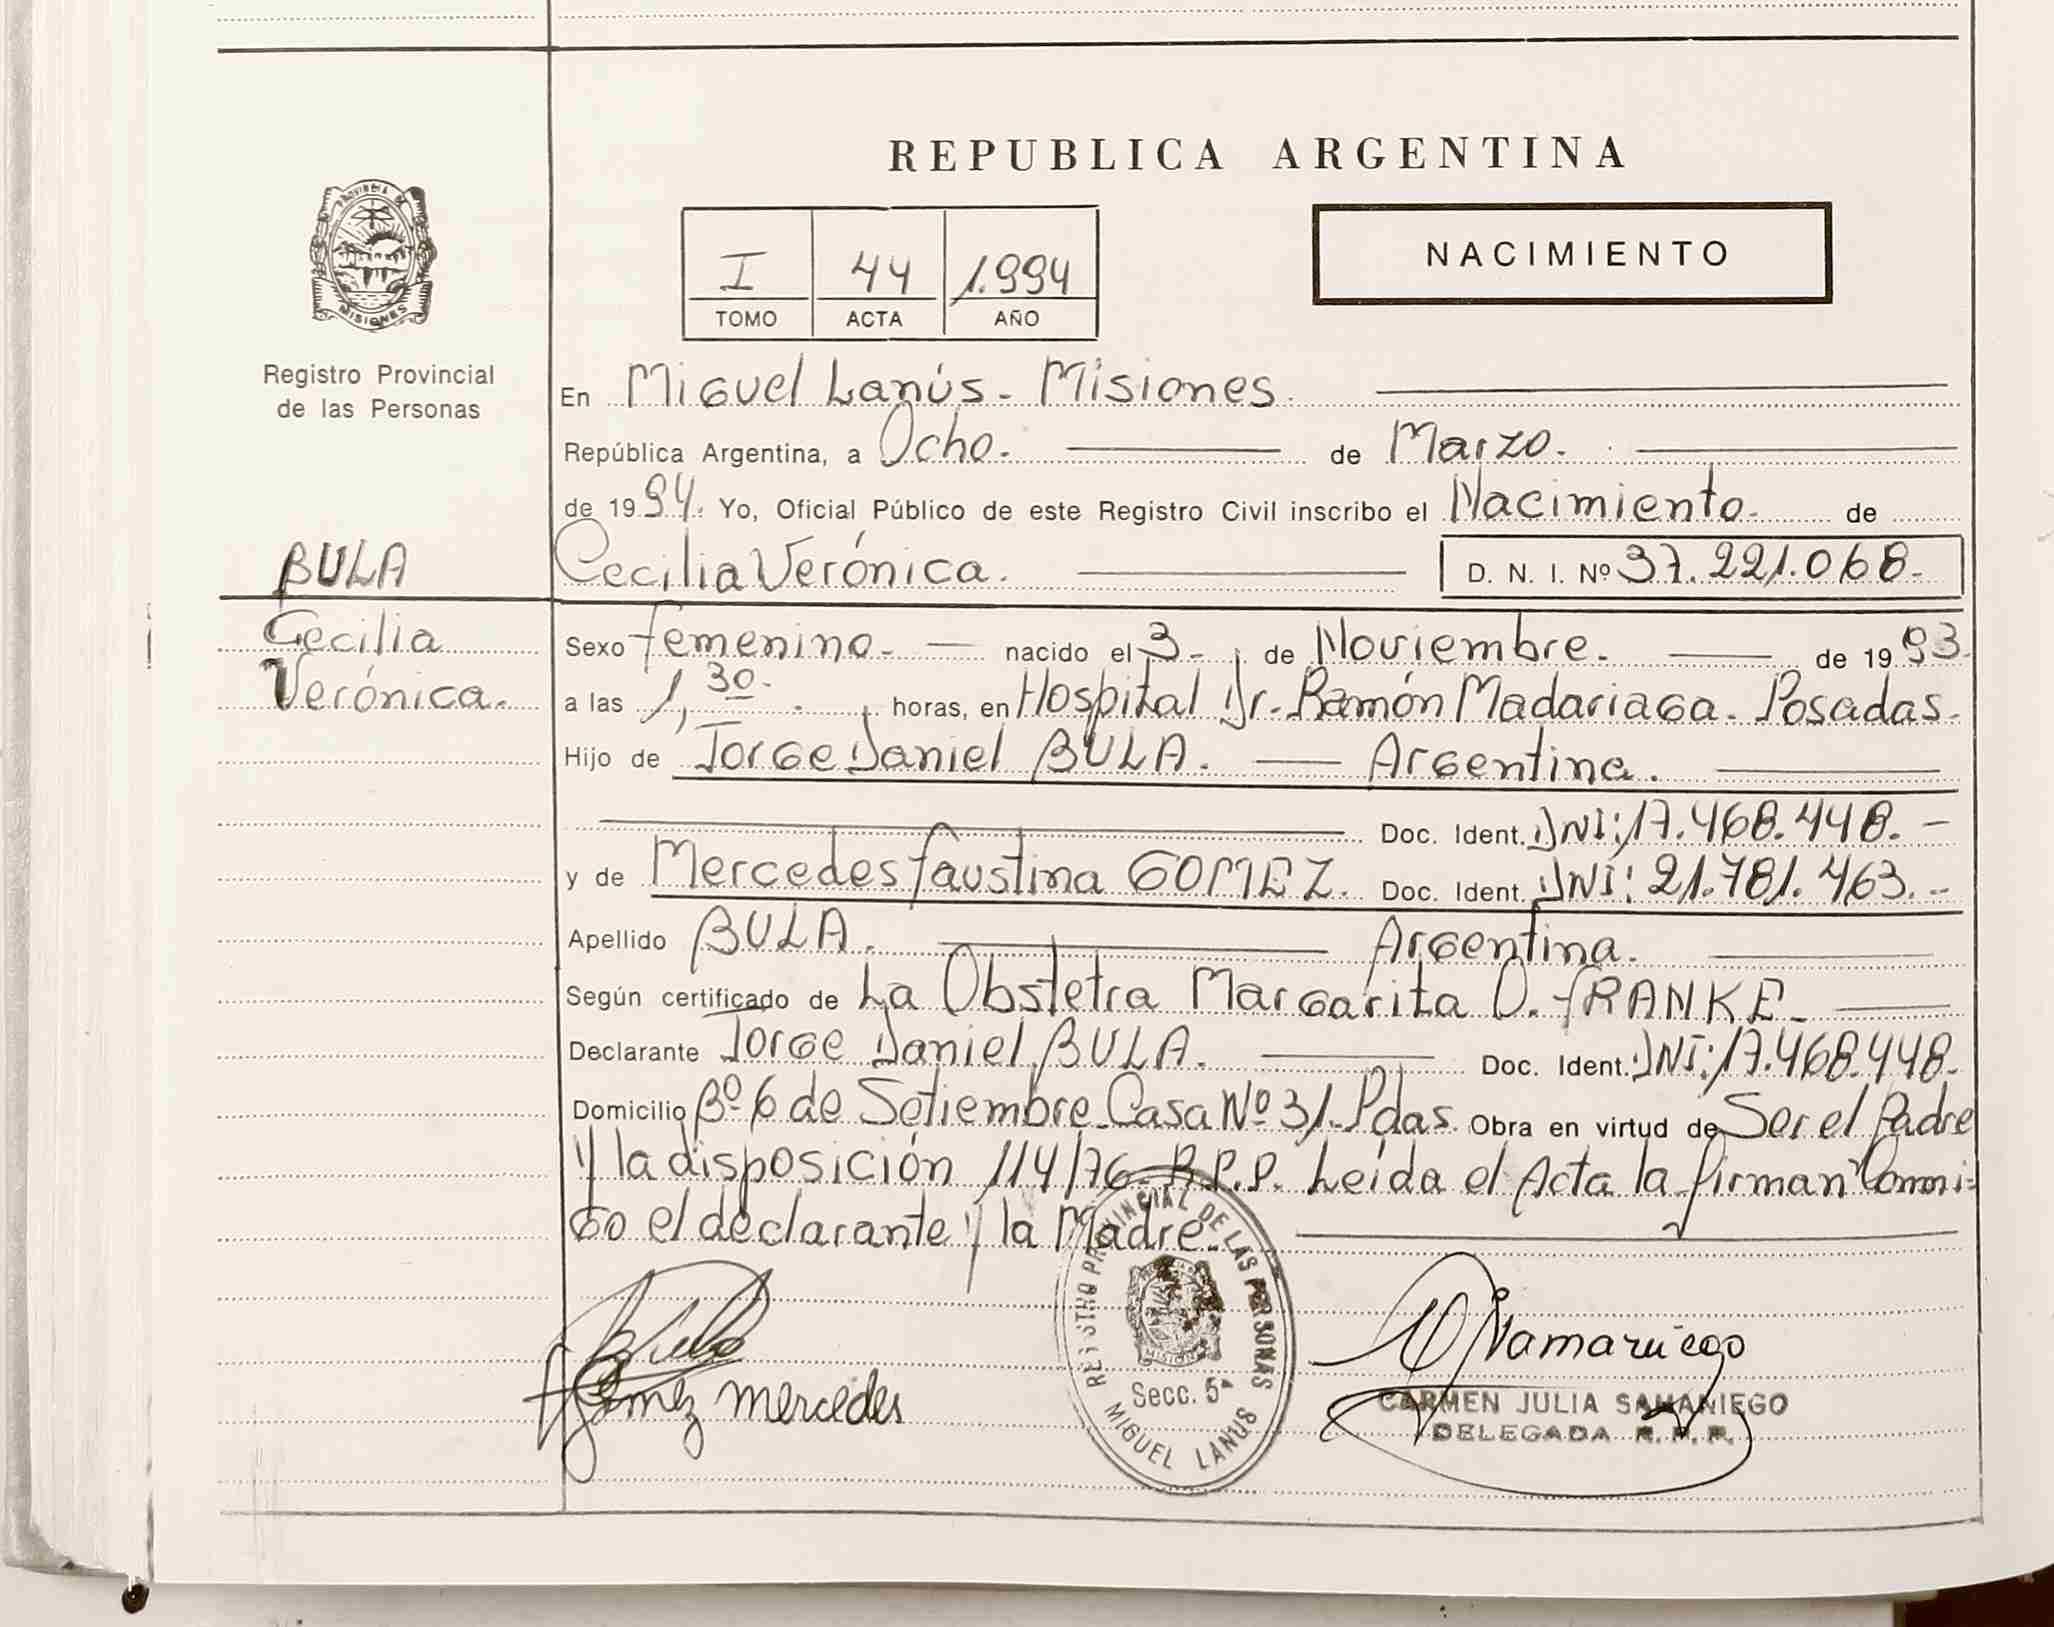 REPUBLICA ARGENTINA
PROVINCIA DE
MISIONES
Registro Provincial
de las Personas
I 44 1.994
TOMO ACTA AÑO
NACIMIENTO
En Miguel Lanús - Misiones.
República Argentina, a Ocho. de Marzo.
de 1994. Yo, Oficial Público de este Registro Civil inscribo el Nacimiento. de
BULA
Cecilia
Verónica.
Cecilia Verónica. D. N. I. Nº 37.221.068.-
Sexo femenino. nacido el 3. de Noviembre. de 1993.
a las 1,30. horas, en Hospital Dr. Ramón Madariaga. Posadas.
Hijo de Jorge Daniel BULA. Argentina.
Doc. Ident. DNI: 17.468.448.-
y de Mercedes Faustina GOMEZ. Doc. Ident. DNI: 21.781.463.-
Apellido BULA. Argentina.
Según certificado de La Obstetra Margarita O. FRANKE.
Declarante Jorge Daniel BULA. Doc. Ident. DNI: 17.468.448.
Domicilio Bº 6 de Setiembre. Casa Nº 31. Pdas. Obra en virtud de Ser el Padre
y la disposición 114/76 R.P.P. Leída el Acta la firman Conmi=
go el declarante y la Madre.
Gómez Mercedes
REGISTRO PROVINCIAL DE LAS PERSONAS
MISIONES
Secc. 5ª
MIGUEL LANUS
Samaniego
CARMEN JULIA SAMANIEGO
DELEGADA R. P. P.